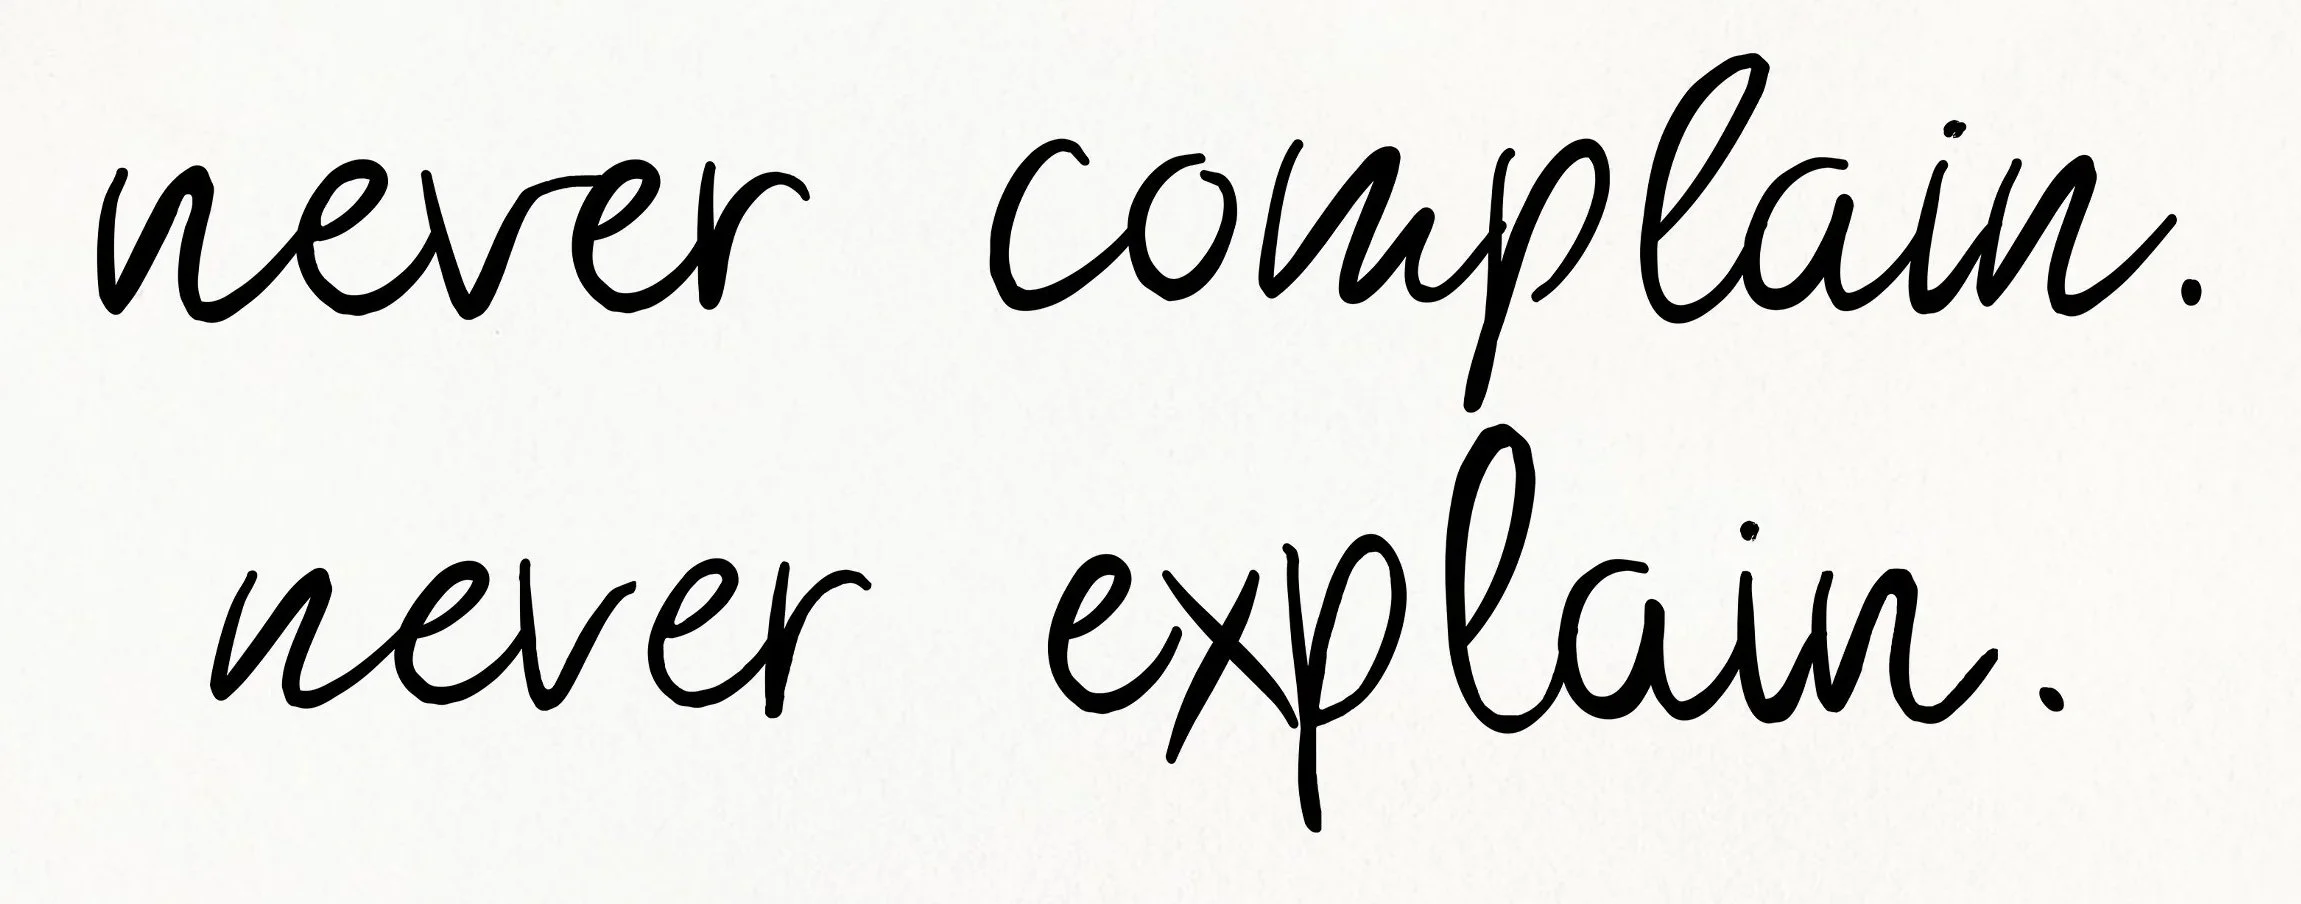 never complain.
never explain.